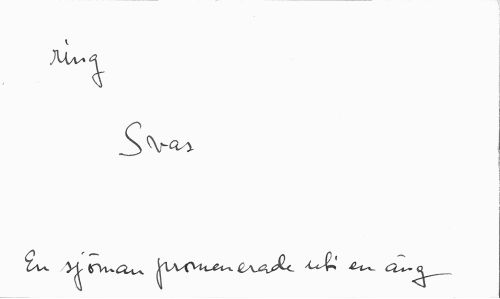 ring
Svar
En sjöman promenerade uti en äng